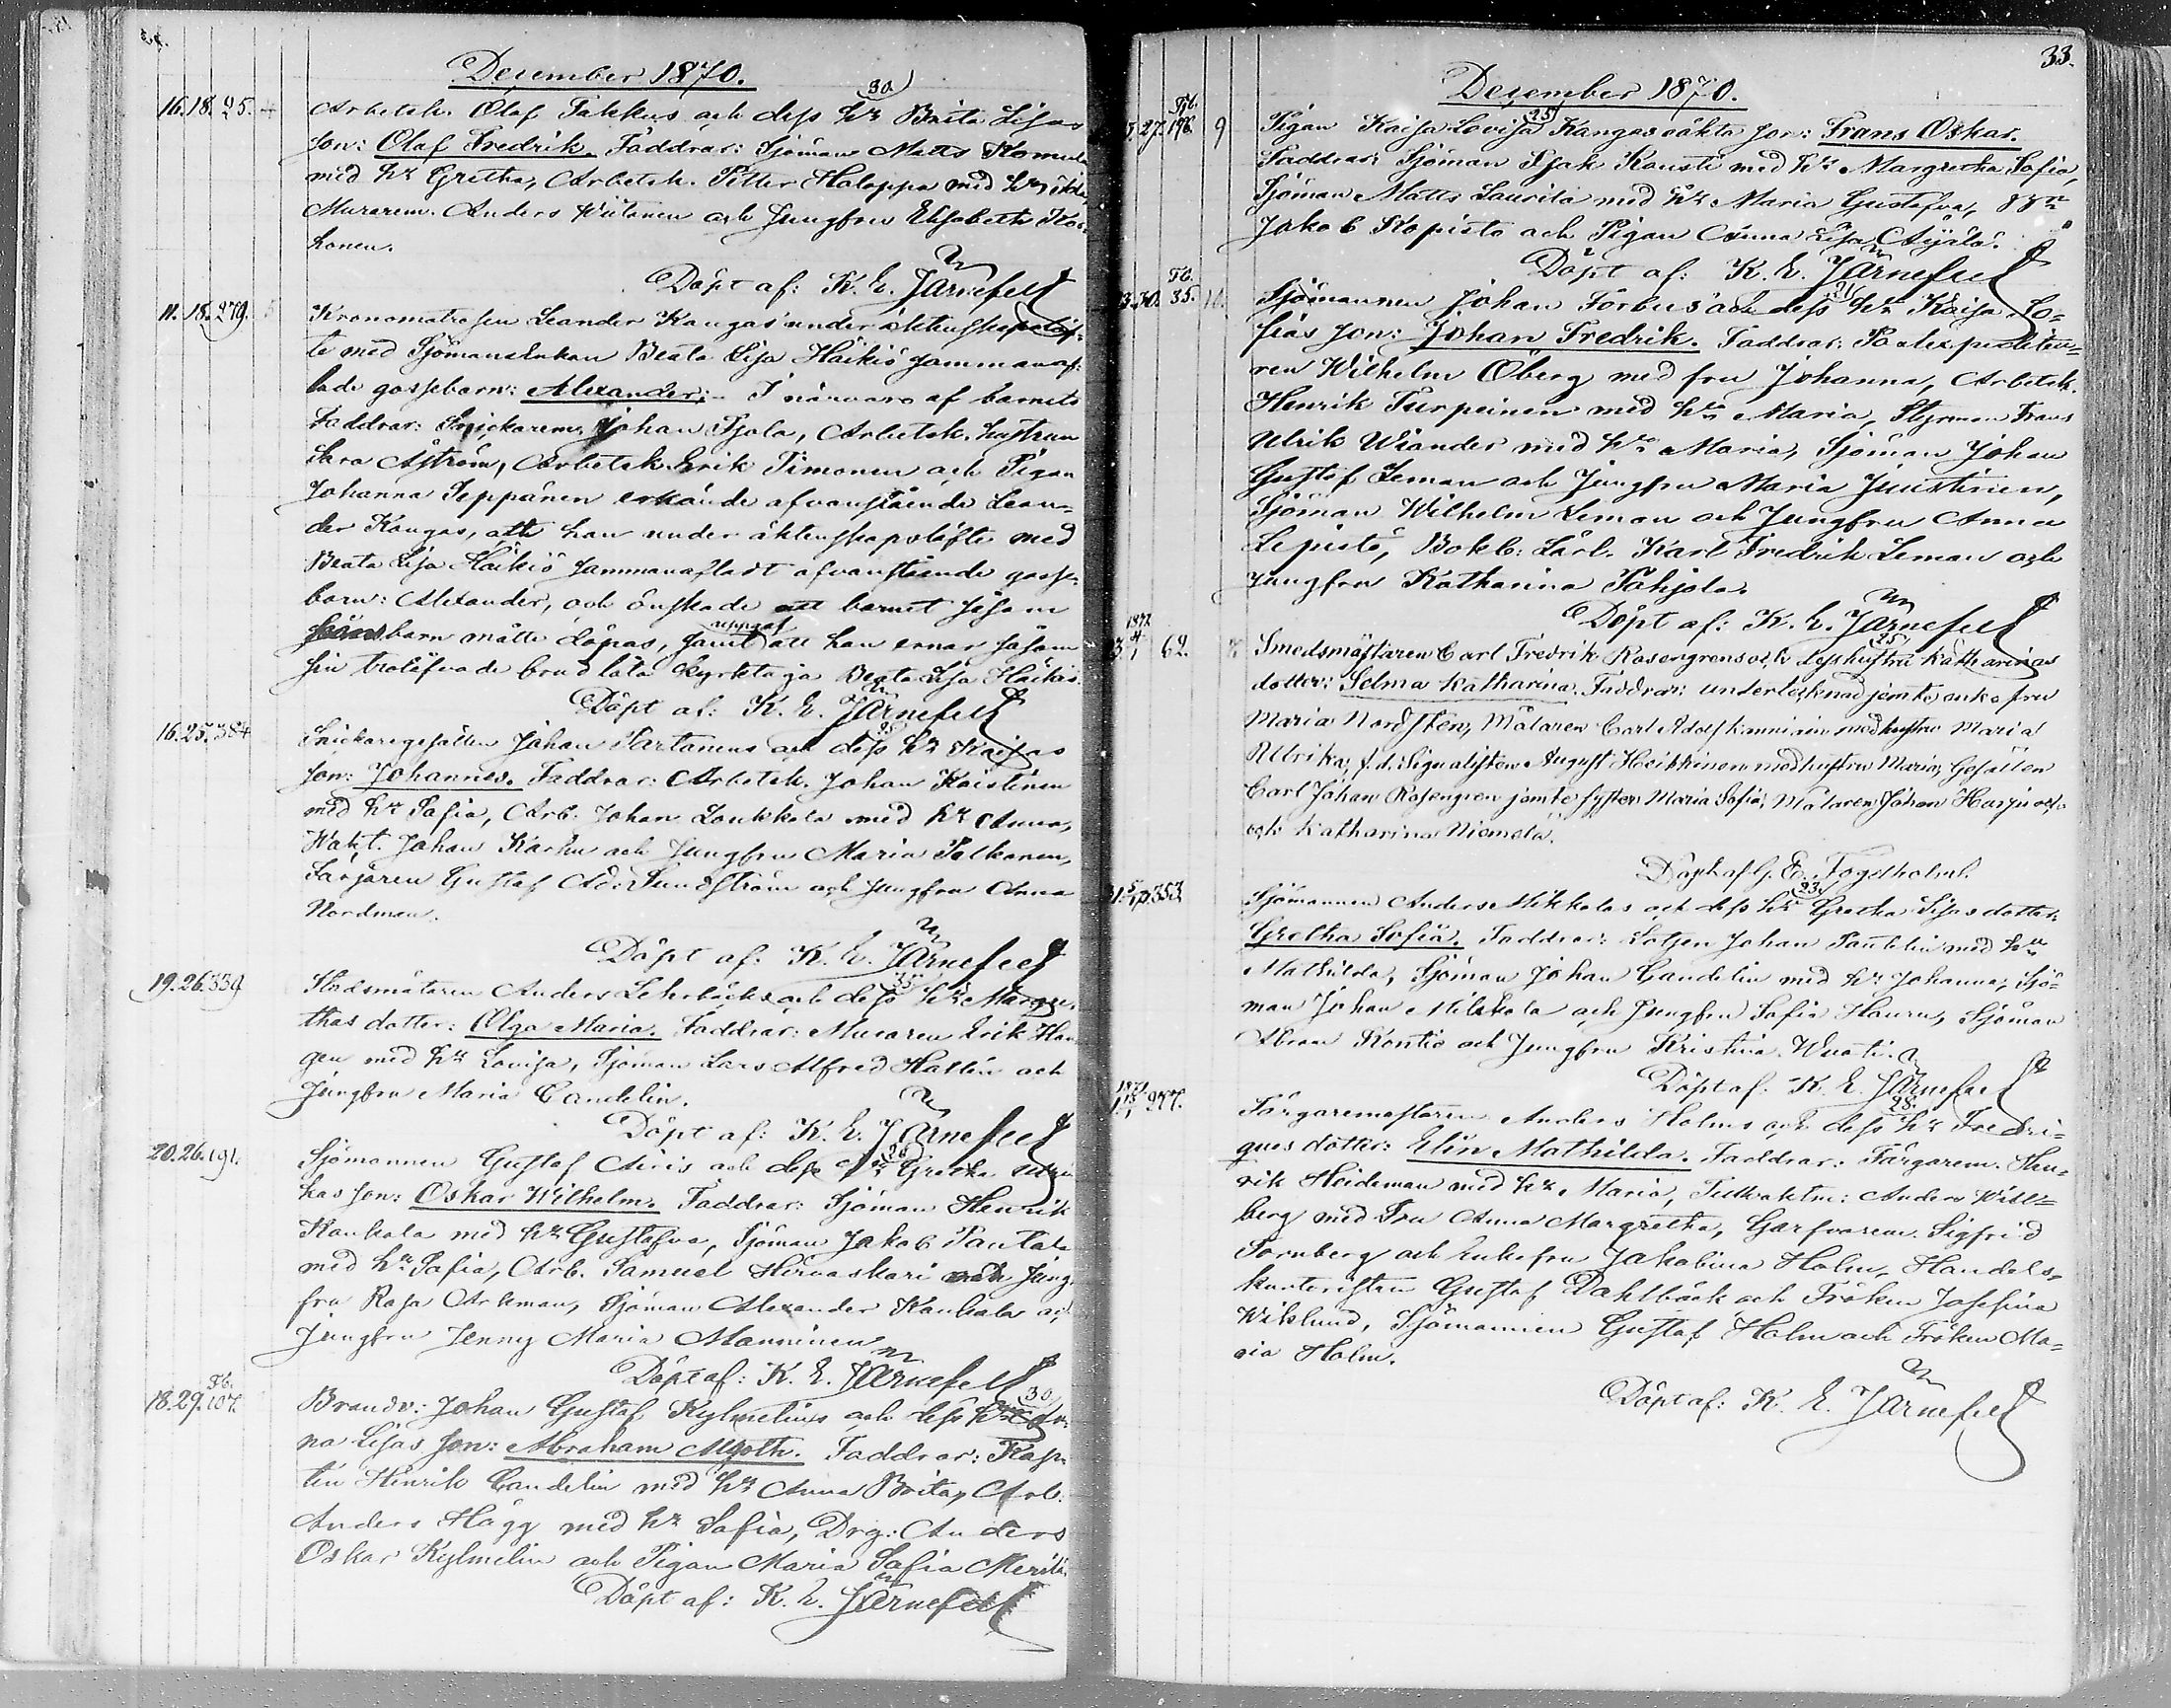 December 1870.
30
16.18.25. Arbetsk. Olof Takkus och dess hu Brita Lisas
son: Olof Fredrik. Faddrar: Sjöman Matts
med hu Gretha, Arbetsk. Petter Holappa med hu
Murarem. Anders Wiitanen och Jungfru Elisabeth Kor-
honen.
Döpt af: K. E. Järnefelt
11.18.279. Kronomatrosen Leander Kangas under äktenskapslöf-
te med Sjömansenkan Beata Lisa Häikiö sammanaf-
lade gossebarn: Alexander. I närvaro af barnets
Faddrar: Snickarem. Johan Sjola, Arbetsk. hustrun
Sara Åström, Arbetsk. Erik Timonen och Pigan
Johanna Seppänen erkände ofvanstående Lean-
der Kangas, att han under äktenskapslöfte med
Beata Lisa Häikiö sammanaflat ofvanstående gosse-
barn: Alexander, och önskade att barnet såsom
hans barn måtte döpas, samt uppgaf att han ernar såsom
sin trolofvade brud låta kyrktaga Beata Lisa Häikiö.
Döpt af: K. E. Järnefelt
16.25.384 Snickaregesällen Johan Partanens och dess hu Kaisas
son: Johannes. Faddrar: Arbetsk. Johan Koistinen
med hu Sofia, Arb. Johan Loukkola med hu Anna,
Wakt. Johan Karhu och Jungfru Maria Pelkonen,
Färgaren Gustaf Ad. Sundström och Jungfru Anna
Nordman.
Döpt af: K. E. Järnefelt
35
19.26.359 Stadsmätaren Anders Lehrbäcks och dess hu Margre-
thas dotter: Olga Maria. Faddrar: Muraren Erik Han-
gen med hu Lovisa, Sjöman Lars Alfred Hallin och
Jungfru Maria Candelin.
Döpt af: K. E. Järnefelt
20.26.191. Sjömannen Gustaf Airis och dess hu Gretha Ulri-
kas son: Oskar Wilhelm. Faddrar: Sjöman Henrik
Kauhala med hu Gustafva, Sjöman Jakob Pantala
med hu Sofia, Arb. Samuel Hirvaskari och Jung-
fru Rosa Arkman, Sjöman Alexander Kauhala och
Jungfru Jenny Maria Manninen
Döpt af: K. E. Järnefelt
30
18.29.107. Brandv: Johan Gustaf Kylmelins och dess hu An-
na Lisas son: Abraham Agoth. Faddrar: Kap-
ten Henrik Candelin med hu Anna Brita, Arb.
Anders Hägg med hu Sofia, Drg: Anders
Oskar Kylmelin och Pigan Maria Sofia Merilä.
Döpt af: K. E. Järnefelt
33.
December 1870.
25
27. 196. 9 Pigan Kaisa Lovisa Kangas oäkta son: Frans Oskar.
Faddrar: Sjöman Isak Kousti med hu Margretha Sofia,
Sjöman Matts Laurila med hu Maria Gustafva,
Jakob Kopisto och Pigan Anna Lisa Äijälä.
Döpt af: K. E. Järnefelt
21
30. 35. 10. Sjömannen Johan Forbus och dess hu Kaisa So-
fias son: Johan Fredrik. Faddrar: Postexpediteu-
ren Wilhelm Öberg med fru Johanna, Arbetsk.
Henrik Turpeinen med hu Maria, Styrman Frans
Ulrik Wiander med hu Maria, Sjöman Johan
Gustaf Leman och Jungfru Maria Juustinen,
Sjöman Wilhelm Leman och Jungfru Anna
Lepistö, Bokb: Lärl. Karl Fredrik Leman och
Jungfru Katharina Pohjola.
Döpt af: K. E. Järnefelt
25
62. Smedsmästaren Carl Fredrik Rosengrens och dess hustru Katharinas
dotter: Selma Katharina. Faddrar: undertecknad jemte enkefru
Maria Nordsten, Målaren Carl Adolf Kanniain med hustru Maria
Ulrika, f.d. Signalisten August Heikkinen med hustru Maria, Gesällen
Carl Johan Rosengren jemte syster Maria Sofia, Målaren Johan Harju och
och Katharina Niemelä.
Döpt af G. E. Fogelholm.
23
353. Sjömannen Anders Mikkolas och dess hu Gretha Lisas dotter:
Gretha Sofia. Faddrar: Lotsen Johan Pantelin med hu
Mathilda, Sjöman Johan Candelin med hu Johanna, Sjö-
man Johan Mikkola och Jungfru Sofia Hauru, Sjöman
Abram Kontio och Jungfru Kristina Wuoti.
Döpt af: K. E. Järnefelt
28.
1871 Färgaremästaren Anders Holms och dess hu Fredri-
ques dotter: Elin Mathilda. Faddrar: Färgarem. Hen-
rik Heideman med hu Maria, Tullvaktm: Anders Wall-
berg med Fru Anna Margretha, Garfvarem. Sigfrid
Sornberg och Enkefru Jakobina Holm, Handels-
kontoristen Gustaf Dahlbäck och Fröken Josefina
Wiklund, Sjömannen Gustaf Holm och Fröken Ma-
ria Holm.
Döpt af: K. E. Järnefelt